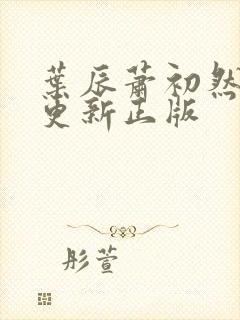 葉辰蕭初然
更新正版
彤萱